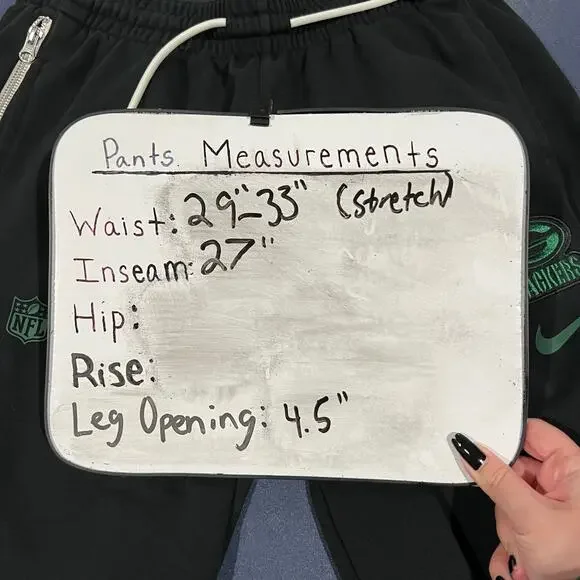 Pants Measurements
Waist: 29"-33" (Stretch)
Inseam: 27"
Hip:
Rise:
Leg Opening: 4.5"
NFL
ACKERS